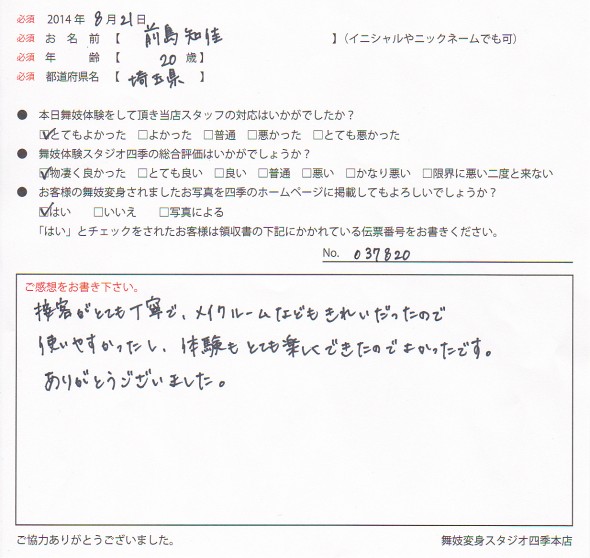 必須 2014年 8月21日
必須 お名前【 前島知佳 】(イニシャルやニックネームでも可)
必須 年齢【 20歳】
必須 都道府県名【 埼玉県 】
● 本日舞妓体験をして頂き当店スタッフの対応はいかがでしたか?
☑とてもよかった □よかった □普通 □悪かった □とても悪かった
● 舞妓体験スタジオ四季の総合評価はいかがでしょうか?
☑物凄く良かった □とても良い □良い □普通 □悪い □かなり悪い □限界に悪い二度と来ない
● お客様の舞妓変身されましたお写真を四季のホームページに掲載してもよろしいでしょうか?
☑はい □いいえ □写真による
「はい」とチェックをされたお客様は領収書の下記にかかれている伝票番号をお書きください。
No. 037820
ご感想をお書き下さい。
接客がとても丁寧で、メイクルームなどもきれいだったので
使いやすかったし、体験もとても楽しくできたのでよかったです。
ありがとうございました。
ご協力ありがとうございました。 舞妓変身スタジオ四季本店